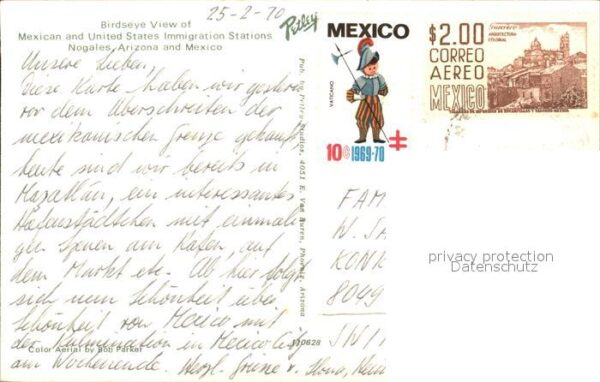 25-2-70
Birdseye View of
Mexican and United States Immigration Stations
Nogales, Arizona and Mexico
Petley
Unsere Lieben,
Diese Karte haben wir gestern
vor dem Überschreiten der
mexikanischen Grenze gekauft,
heute sind wir bereits in
Mazatlán, ein interessantes
Hafenstädtchen mit einmali-
gen Szenen am Hafen, auf
dem Markt etc. Ab hier folgt
sich nun Schönheit über
Schönheit von Mexico mit
der Kulmination in Mexico City
am Wochenende. Herzl. Grüsse v.
Color Aerial by Bob Parker
Pub. by Petley Studios, 4051 E. Van Buren, Phoenix, Arizona
MEXICO
VATICANO
10¢ 1969-70
$2.00
CORREO
AEREO
MEXICO
Guerrero
ARQUITECTURA
COLONIAL
FAM
N. SA
KONK
8049
privacy protection
Datenschutz